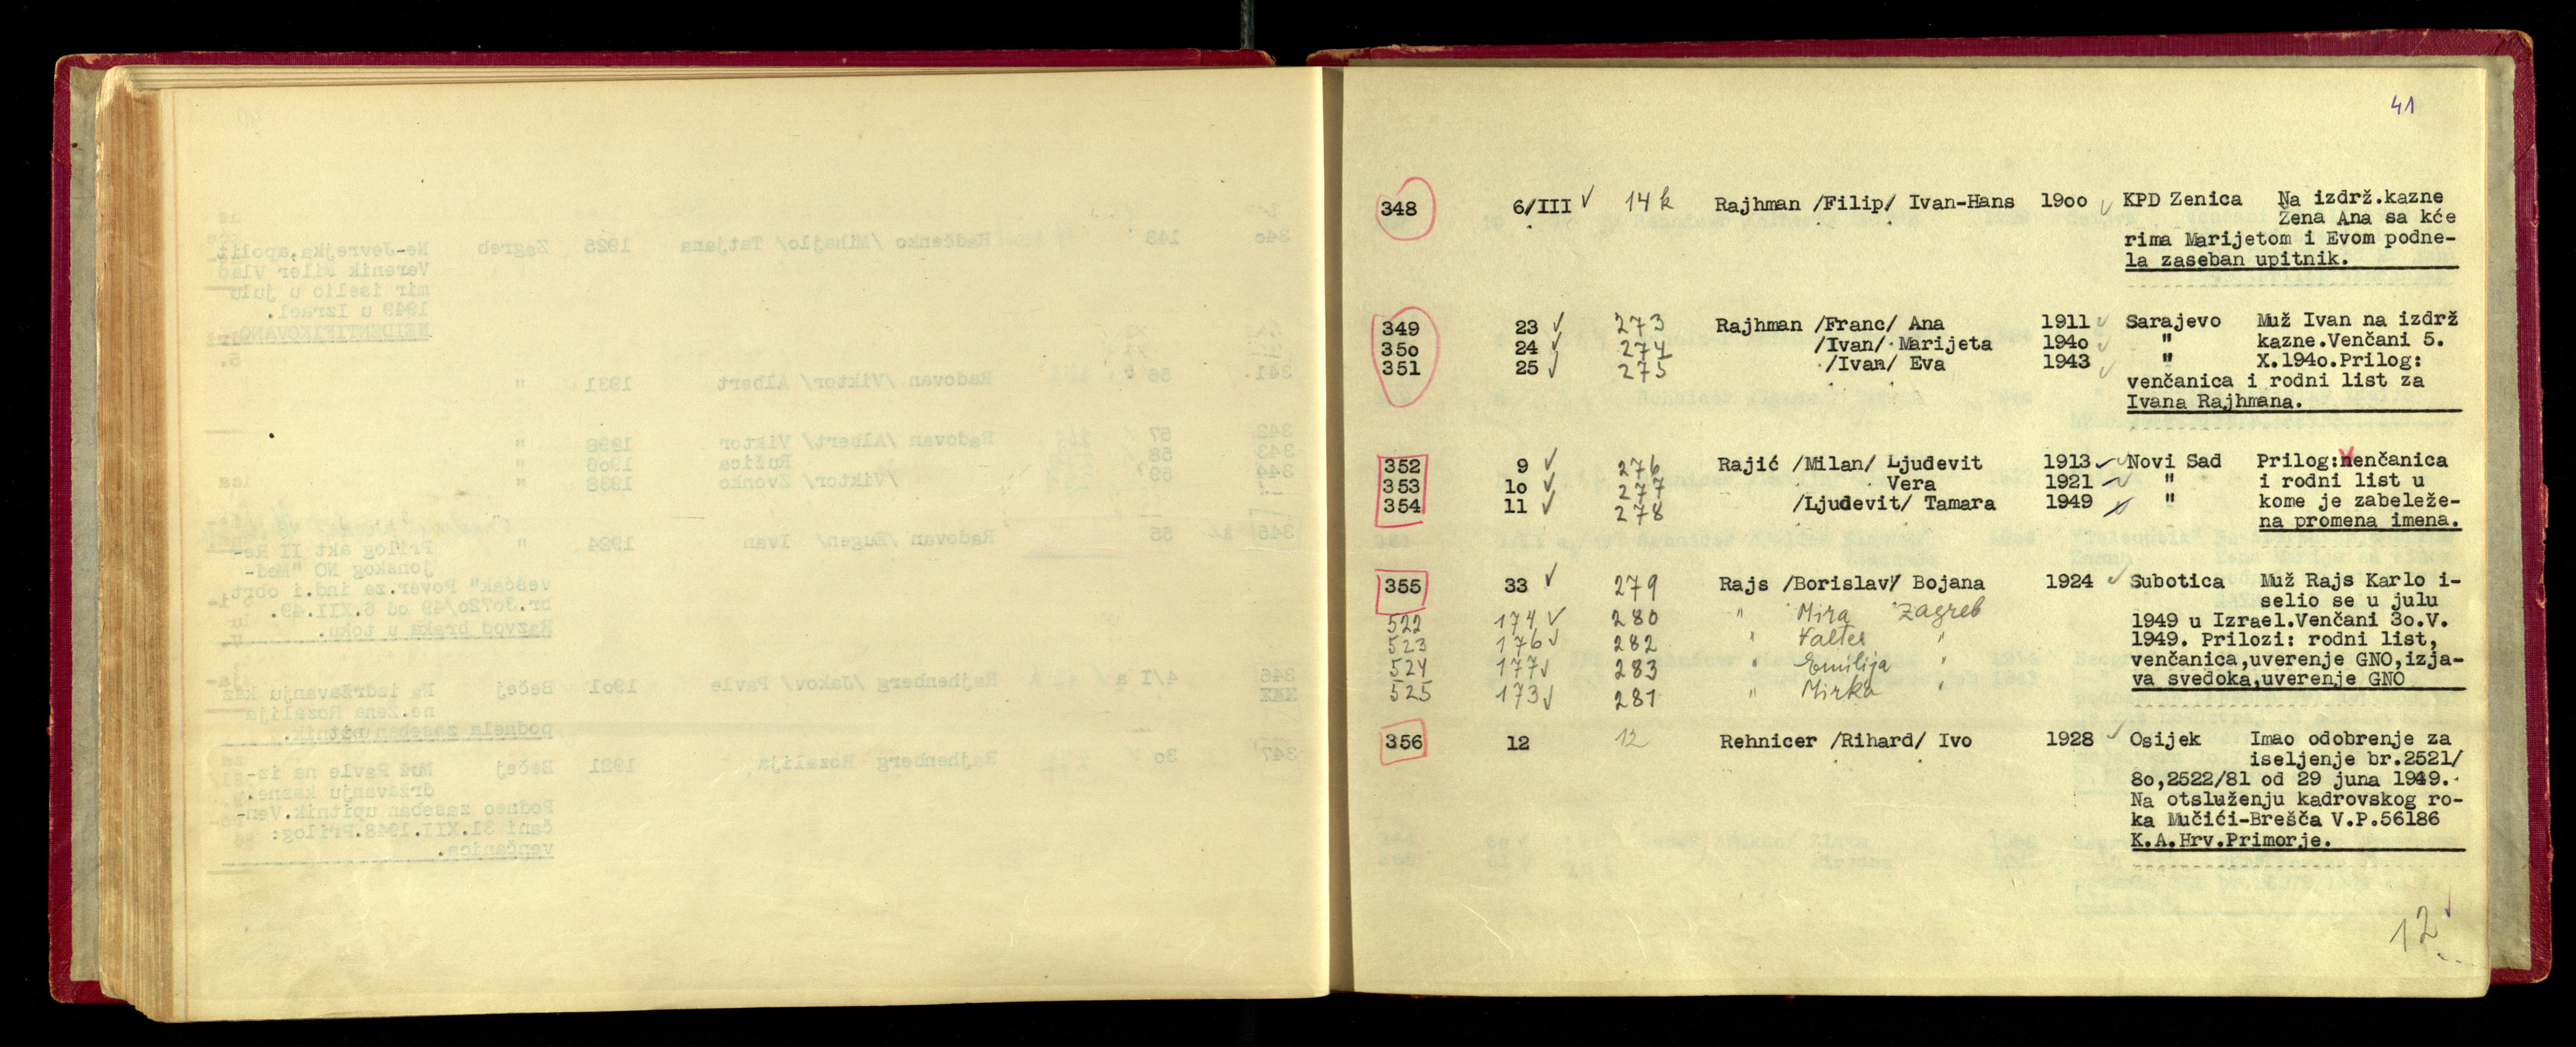 41
348 6/III ✓ 14 k Rajhman /Filip/ Ivan-Hans 19oo ✓ KPD Zenica Na izdrž.kazne
Žena Ana sa kće
rima Marijetom i Evom podne-
la zaseban upitnik.
349 23 ✓ 273 Rajhman /Franc/ Ana 1911 ✓ Sarajevo Muž Ivan na izdrž
35o 24 ✓ 274 /Ivan/ Marijeta 194o ✓ " kazne.Venčani 5.
351 25 ✓ 275 /Ivan/ Eva 1943 ✓ " X.194o.Prilog:
venčanica i rodni list za
Ivana Rajhmana.
352 9 ✓ 276 Rajić /Milan/ Ljudevit 1913 ✓ Novi Sad Prilog:venčanica
353 1o ✓ 277 Vera 1921 ✓ " i rodni list u
354 11 ✓ 278 /Ljudevit/ Tamara 1949 " kome je zabeleže-
na promena imena.
355 33 ✓ 279 Rajs /Borislav/ Bojana 1924 ✓ Subotica Muž Rajs Karlo i-
selio se u julu
522 174 ✓ 280 " Mira Zagreb 1949 u Izrael.Venčani 3o.V.
523 176 ✓ 282 " Valter " 1949. Prilozi: rodni list,
524 177 ✓ 283 " Emilija " venčanica,uverenje GNO,izja-
525 173 ✓ 281 " Mirka " va svedoka,uverenje GNO
356 12 12 Rehnicer /Rihard/ Ivo 1928 ✓ Osijek Imao odobrenje za
iseljenje br.2521/
8o,2522/81 od 29 juna 1949.
Na otsluženju kadrovskog ro-
ka Mučići-Brešča V.P.56186
K.A.Hrv.Primorje.
12